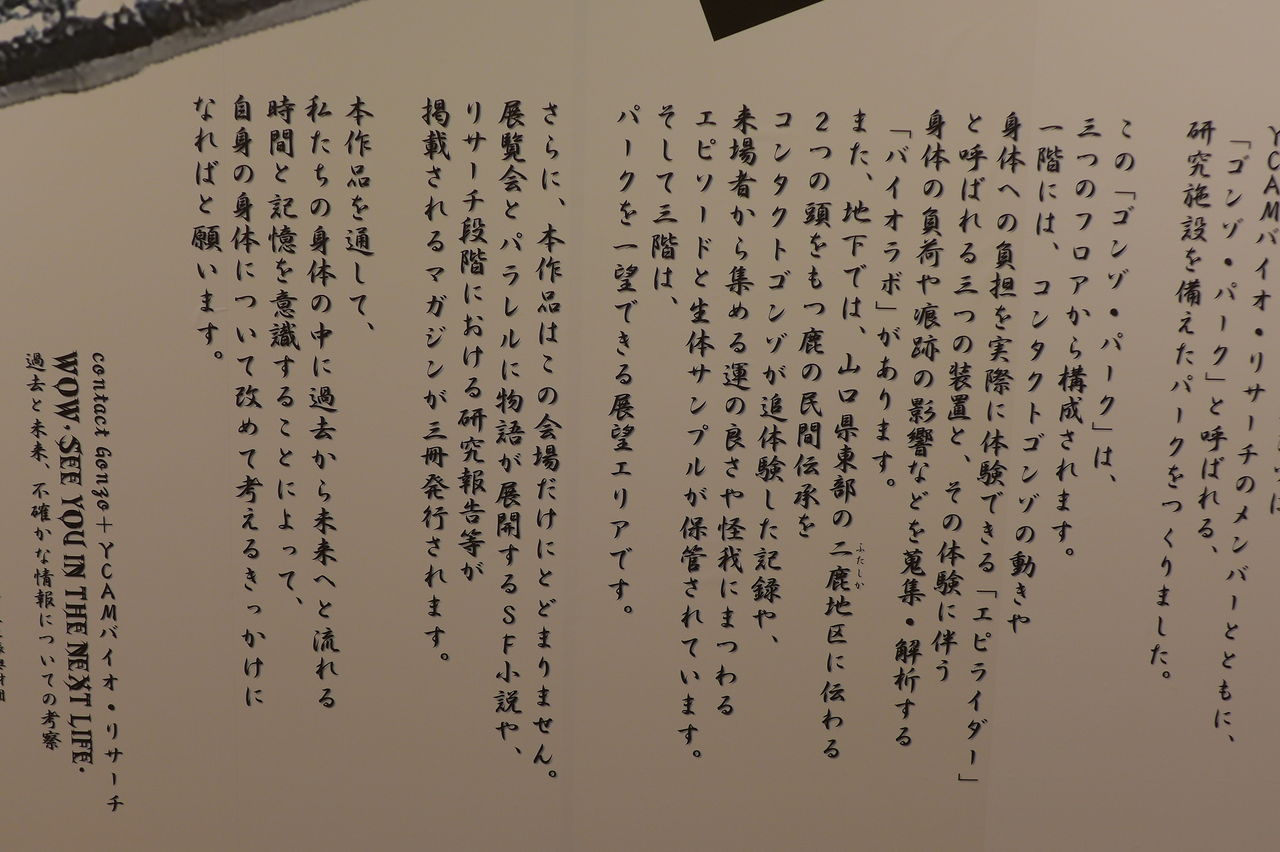 YCAMバイオ・リサーチのメンバーとともに、
「ゴンゾ・パーク」と呼ばれる、
研究施設を備えたパークをつくりました。
この「ゴンゾ・パーク」は、
三つのフロアから構成されます。
一階には、コンタクトゴンゾの動きや
身体への負担を実際に体験できる「エピライダー」
と呼ばれる三つの装置と、その体験に伴う
身体の負荷や痕跡の影響などを蒐集・解析する
「バイオラボ」があります。
また、地下では、山口県東部の二鹿地区に伝わる
ふたしか
2つの頭をもつ鹿の民間伝承を
コンタクトゴンゾが追体験した記録や、
来場者から集める運の良さや怪我にまつわる
エピソードと生体サンプルが保管されています。
そして三階は、
パークを一望できる展望エリアです。
さらに、本作品はこの会場だけにとどまりません。
展覧会とパラレルに物語が展開するSF小説や、
リサーチ段階における研究報告等が
掲載されるマガジンが三冊発行されます。
本作品を通して、
私たちの身体の中に過去から未来へと流れる
時間と記憶を意識することによって、
自身の身体について改めて考えるきっかけに
なればと願います。
contact Gonzo+YCAMバイオ・リサーチ
WOW, SEE YOU IN THE NEXT LIFE.
過去と未来、不確かな情報についての考察